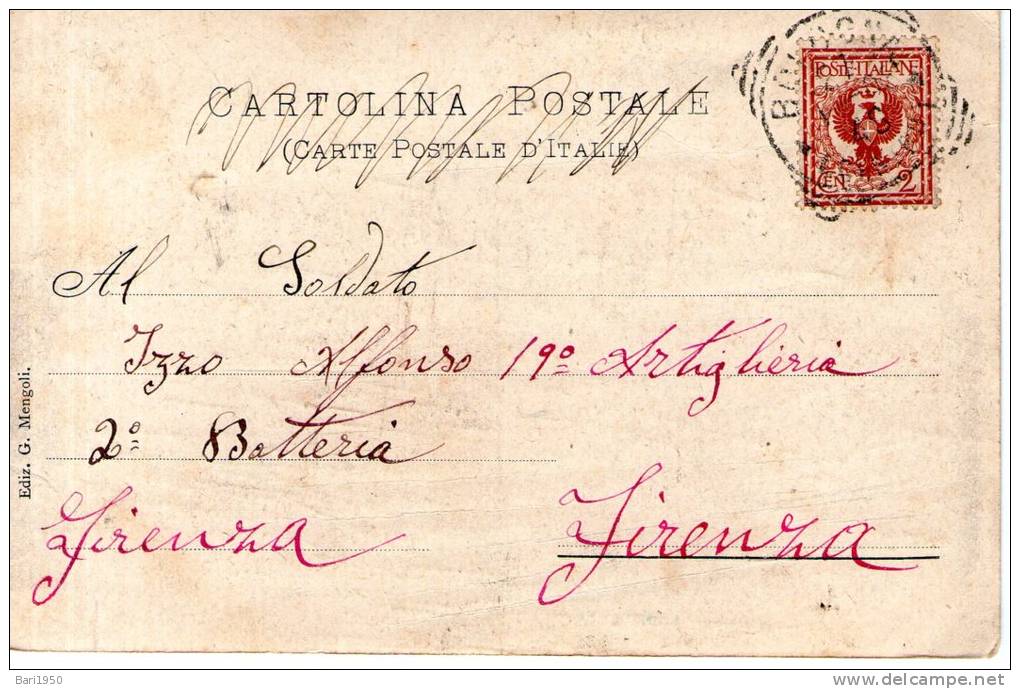 CARTOLINA POSTALE
(CARTE POSTALE D'ITALIE)
POSTE·ITALIANE
CEN. 2
Al Soldato
Izzo Alfonso 19º Artiglieria
2º Batteria
Firenza Firenza
Ediz. G. Mengoli.
Bari1950
delcampe.net